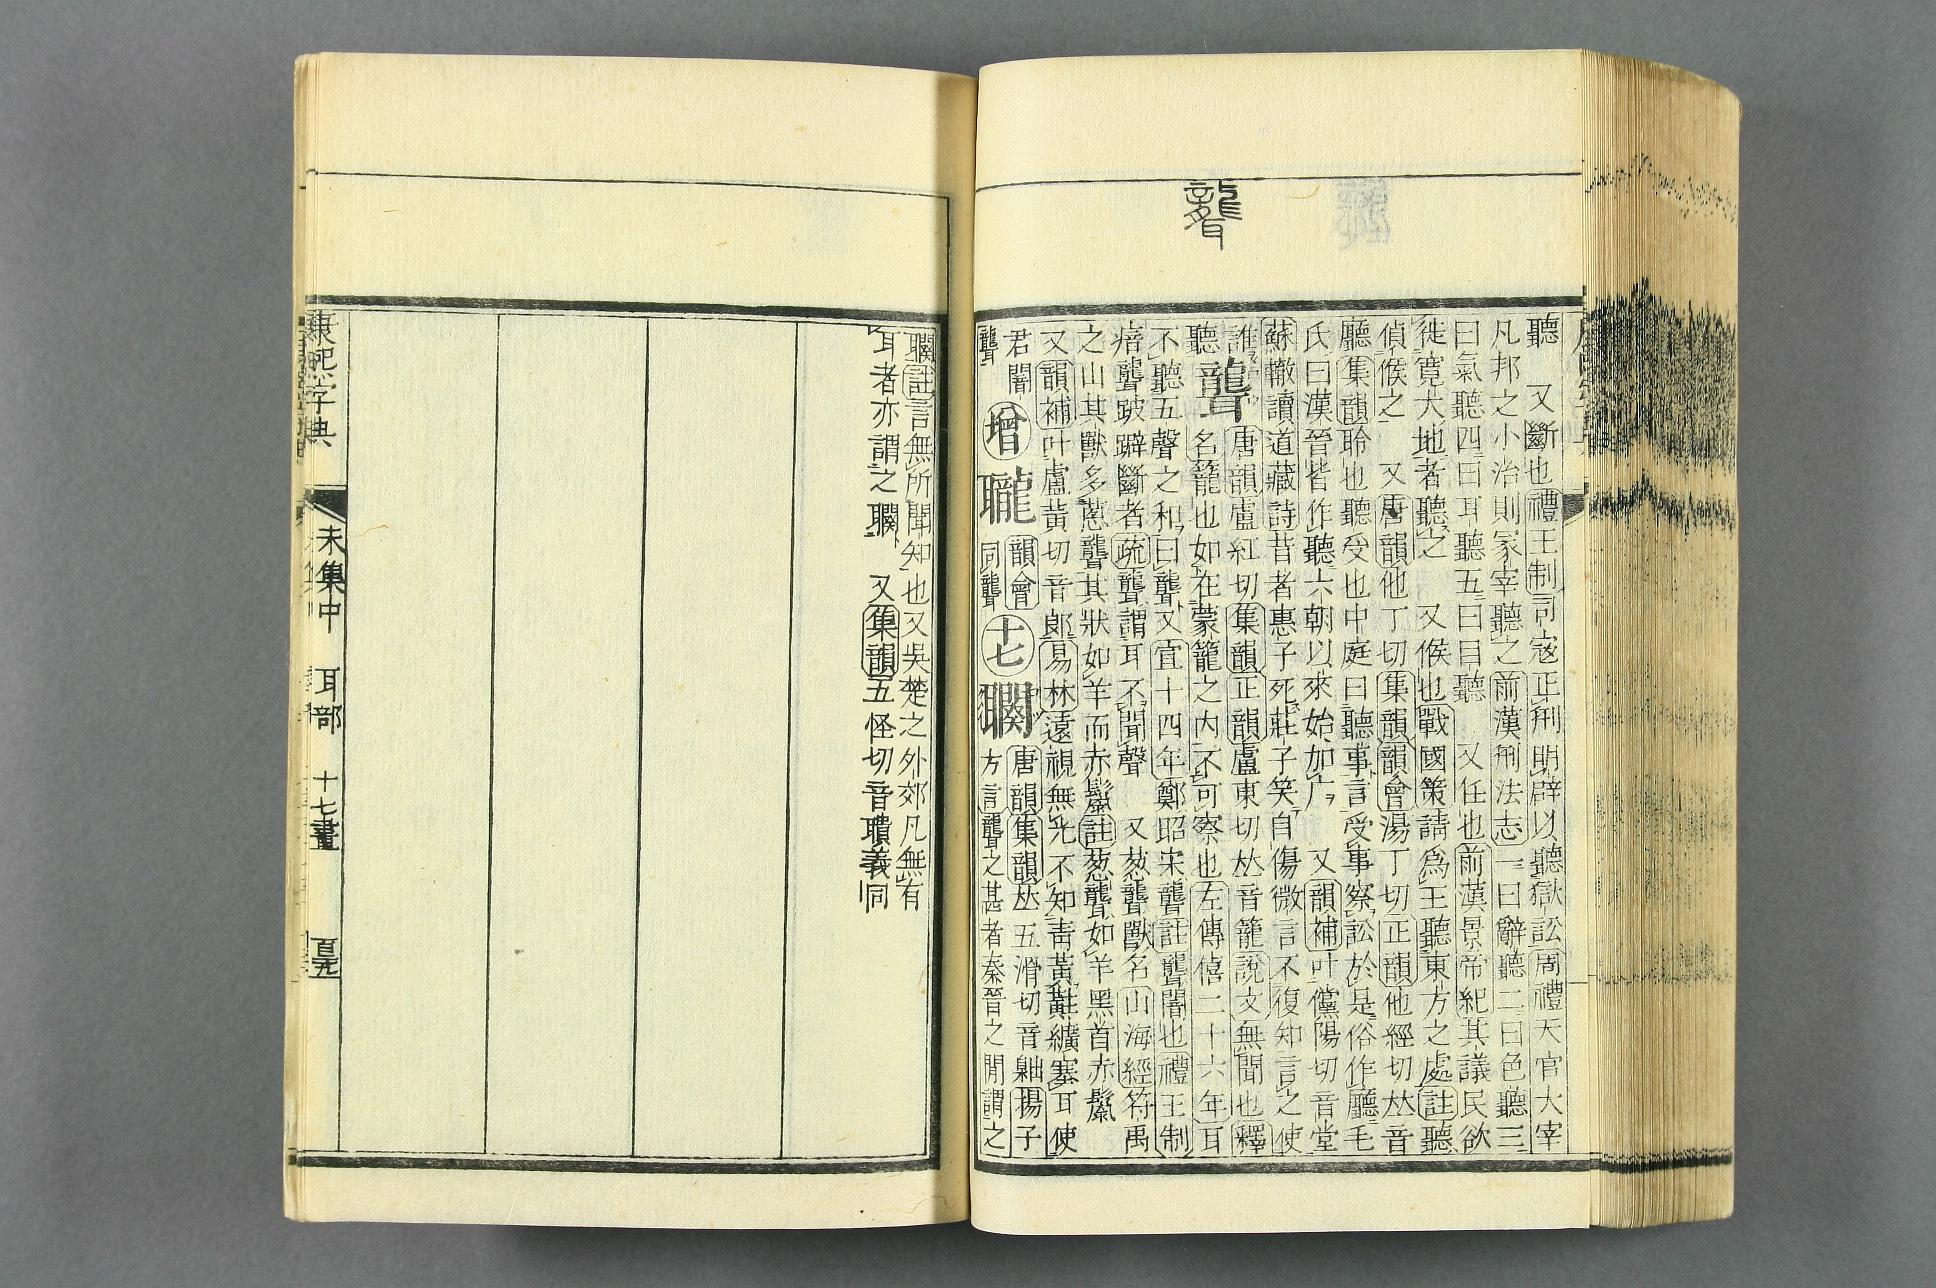 聽　又斷也禮王制司寇正刑明辟以聽獄訟周禮天官大宰
凡邦之小治則冢宰聽之前漢刑法志一曰辭聽二曰色聽三
曰氣聽四曰耳聽五曰目聽　又任也前漢景帝紀其議民欲
徙寬大地者聽之　又候也戰國策請爲王聽東方之處註聽
偵候之　又唐韻他丁切集韻韻會湯丁切正韻他經切𠀤音
廳集韻聆也聽受也中庭曰聽事言受事察訟於是俗作廳毛
氏曰漢晉皆作聽六朝以來始加广　又韻補叶儻陽切音堂
蘇轍讀道藏詩昔者惠子死莊子笑自傷微言不復知言之使
誰聽
聾
聾唐韻盧紅切集韻正韻盧東切𠀤音籠說文無聞也釋
名籠也如在蒙籠之內不可察也左傳僖二十六年耳
不聽五聲之和曰聾又宣十四年鄭昭宋聾註聾闇也禮王制
瘖聾跛躃斷者疏聾謂耳不聞聲　又葱聾獸名山海經符禹
之山其獸多葱聾其狀如羊而赤鬣註葱聾如羊黑首赤鬣
又韻補叶盧黃切音郞易林遠視無光不知靑黃黈纊塞耳使
君闇聾
增
䏊韻會同聾
十七
䦧唐韻集韻𠀤五滑切音聉揚子方言聾之甚者秦晉之閒謂之
䦧註言無所聞知也又吳楚之外郊凡無有
耳者亦謂之䦧　又集韻五怪切音聵義同
康熙字典
未集中　耳部　十七畫